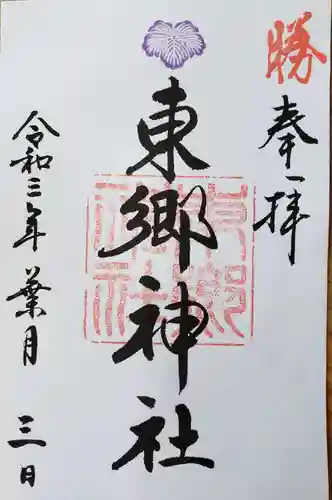 勝
奉拝
東郷神社
令和三年葉月三日